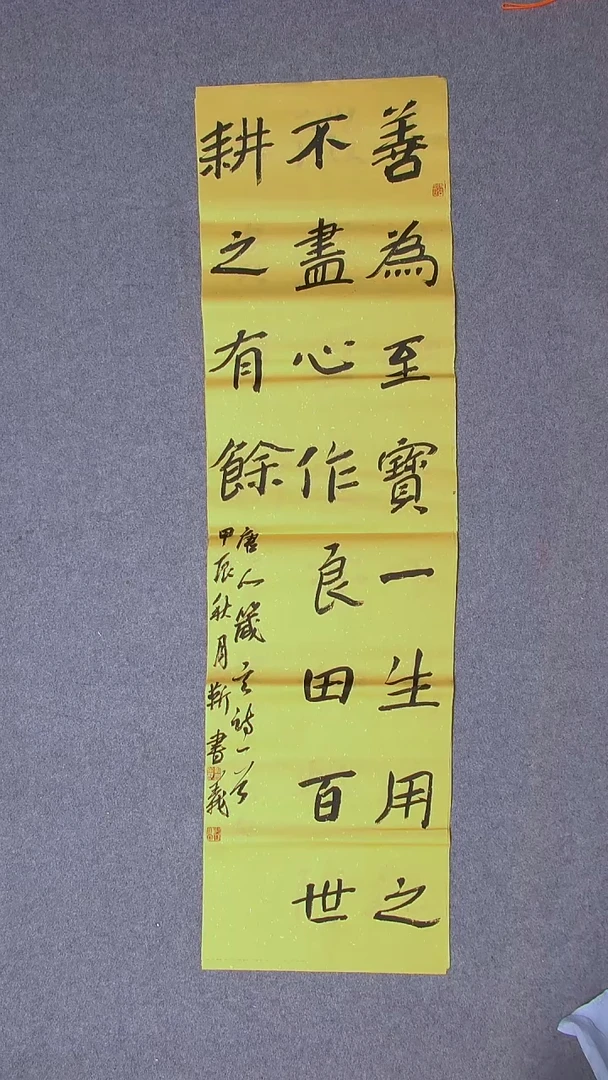 善為至寶一生用之
不盡心作良田百世
耕之有餘
唐人箴言詩一首
甲辰秋月靳書義